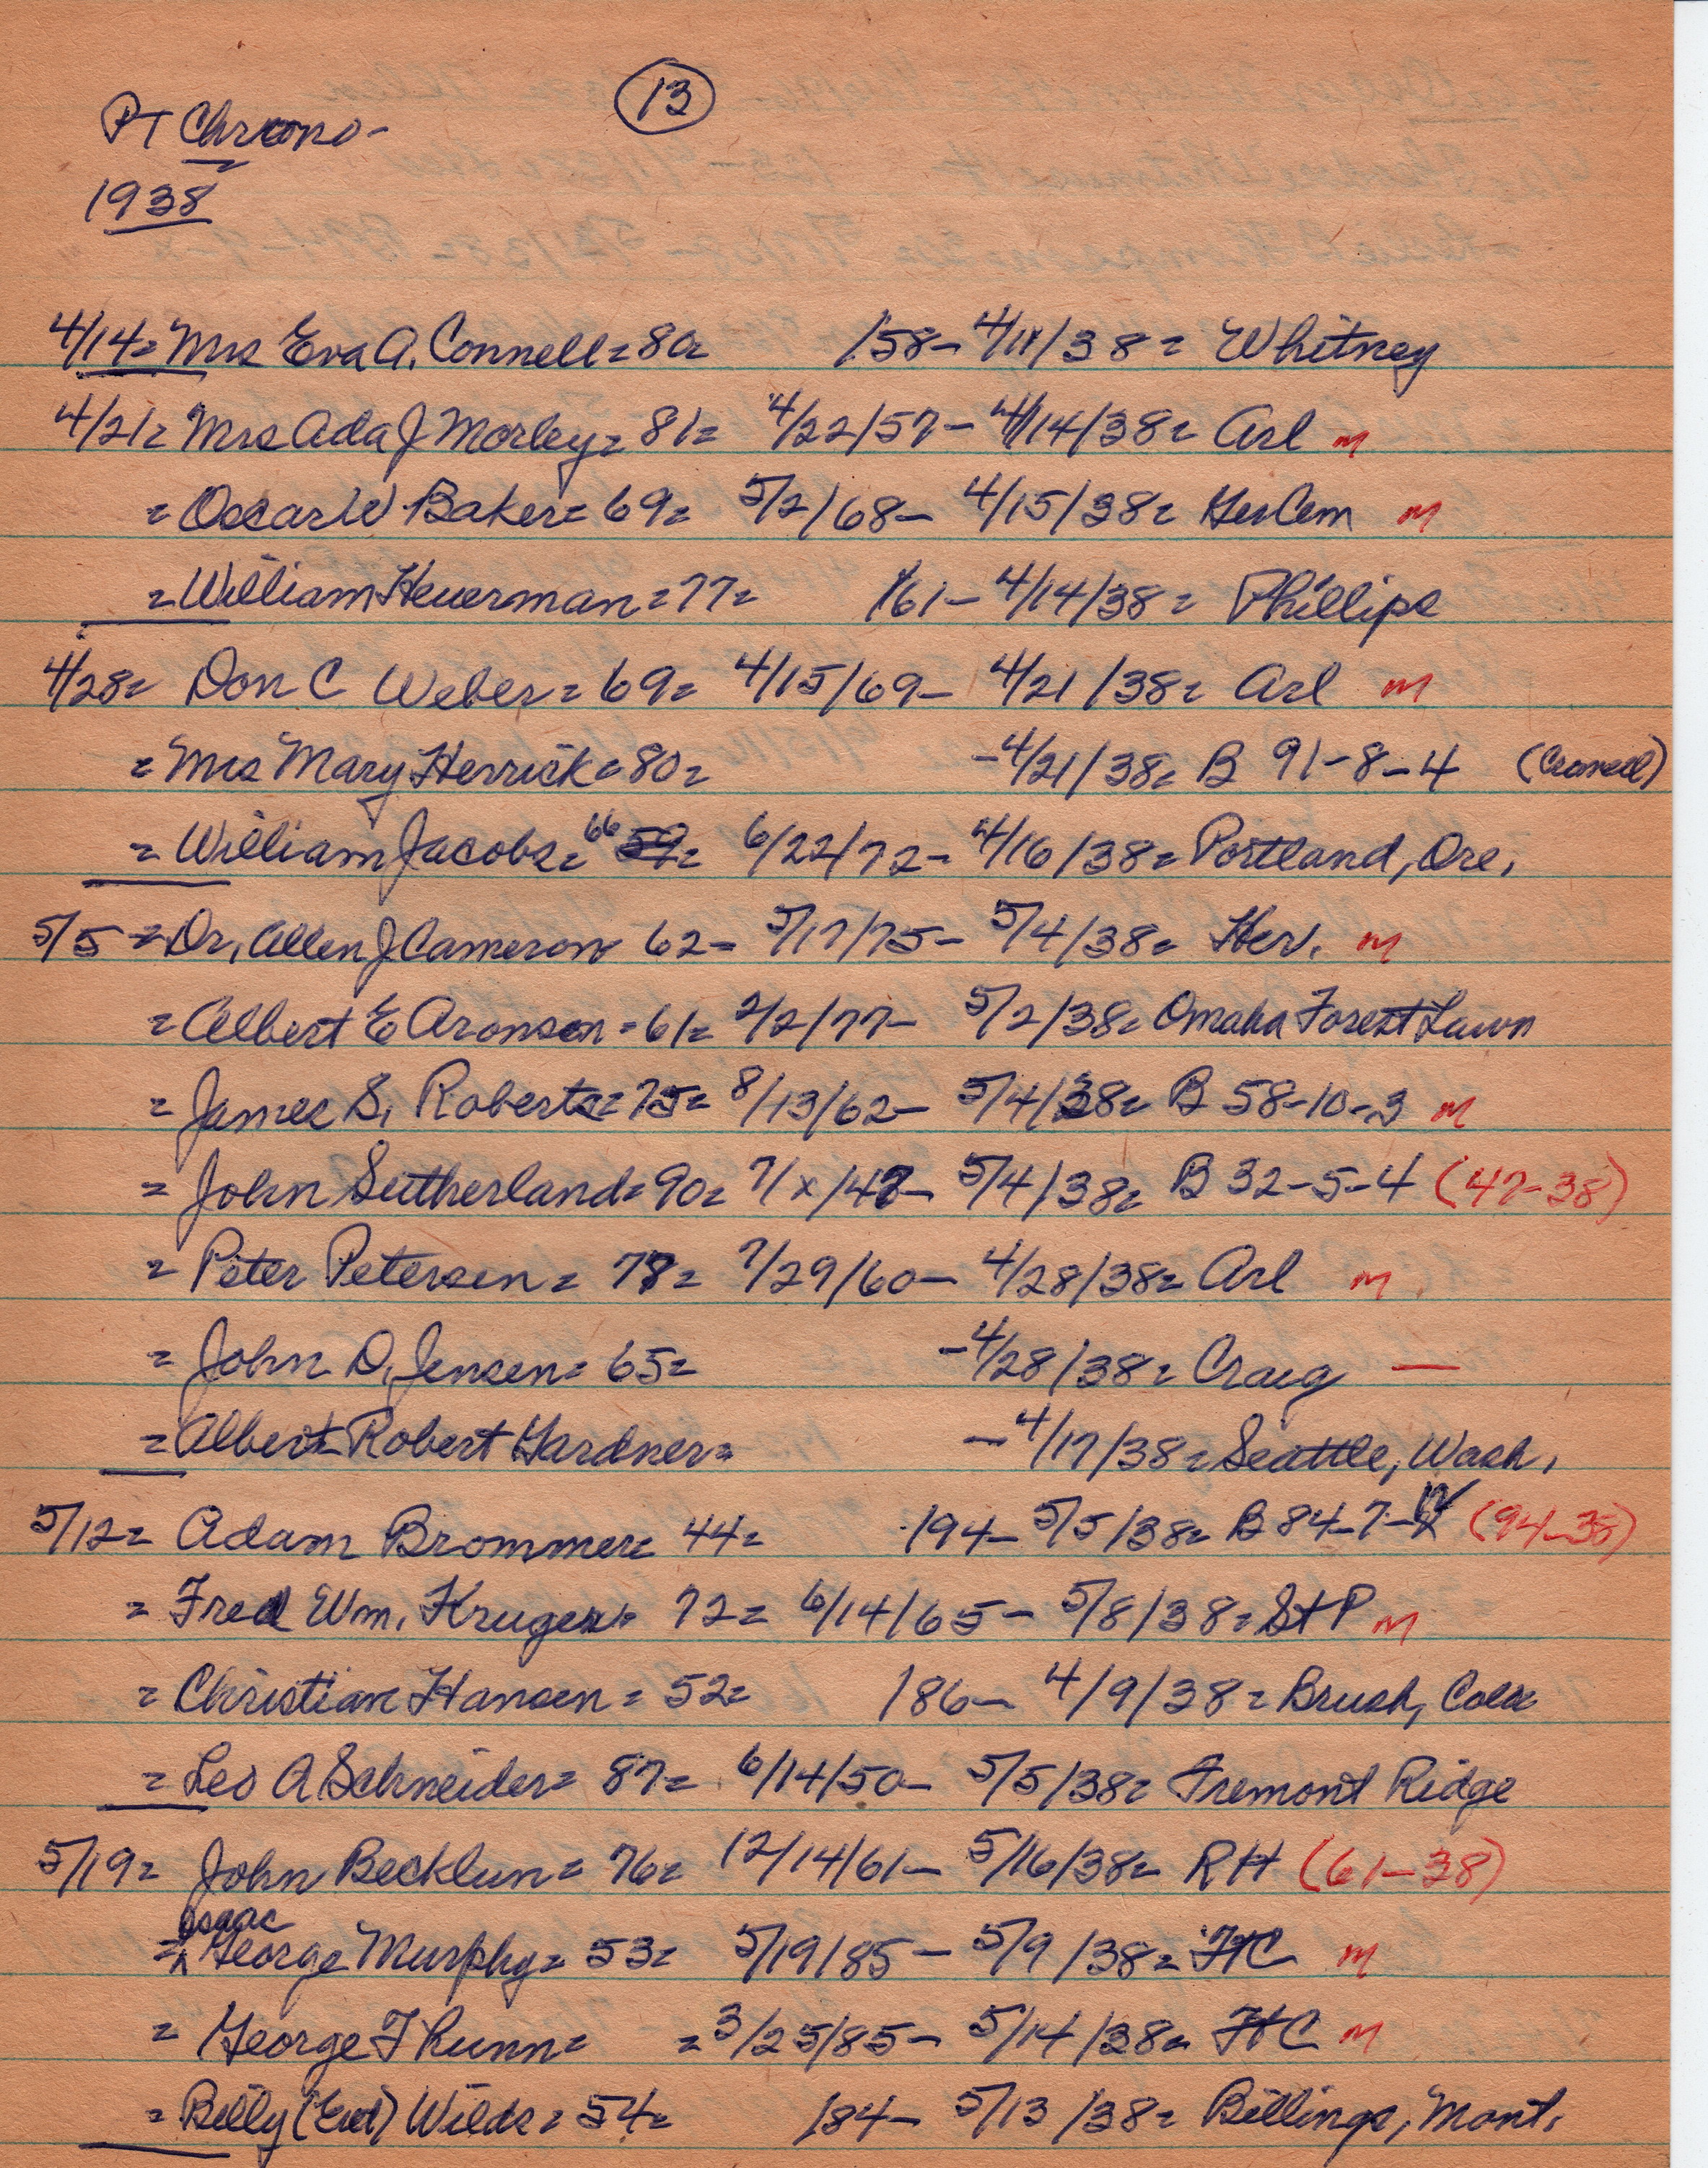 13
PT Chrono-
1938
4/14= Mrs Eva A. Connell=80= /58- 4/11/38= Whitney
4/21= Mrs Ada J Morley= 81= 4/22/57- 4/14/38= Arl m
= Oscar W Baker= 69= 5/2/68- 4/15/38= GerCem m
= William Heuerman=77= /61- 4/14/38= Phillips
4/28= Don C Weber= 69= 4/15/69- 4/21/38= Arl m
= Mrs Mary Herrick=80= -4/21/38= B 91-8-4
= William Jacobs= 66 59= 6/22/72- 4/16/38= Portland, Ore.
5/5 = Dr. Allen J Cameron 62= 5/17/75- 5/4/38= Her. m
= Albert E Aronson= 61= 2/2/77- 5/2/38= Omaha Forest Lawn
= James S. Roberts=75= 8/13/62- 5/4/38= B 58-10-3 m
= John Sutherland=90= 7/x/47- 5/4/38= B 32-5-4 (47-38)
= Peter Petersen= 77= 7/29/60- 4/28/38= Arl m
= John D. Jensen= 65= -4/28/38= Craig —
= Albert Robert Gardner= -4/17/38= Seattle, Wash.
5/12= Adam Brommer= 44= /94- 5/5/38= B 84-7- (94-38)
= Fred Wm. Kruger= 72= 6/14/65- 5/8/38= St P m
= Christian Hansen= 52= /86- 4/9/38= Brush, Colo
= Leo A Schneider= 87= 6/14/50- 5/5/38= Fremont Ridge
5/19= John Becklun= 76= 12/14/61- 5/16/38= RH (61-38)
Isaac
= George Murphy= 53= 5/19/85- 5/9/38= FtC m
= George Thunn= =3/25/85- 5/14/38= FtC m
= Billy Wilds= 54= /84- 5/13/38= Billings, Mont.